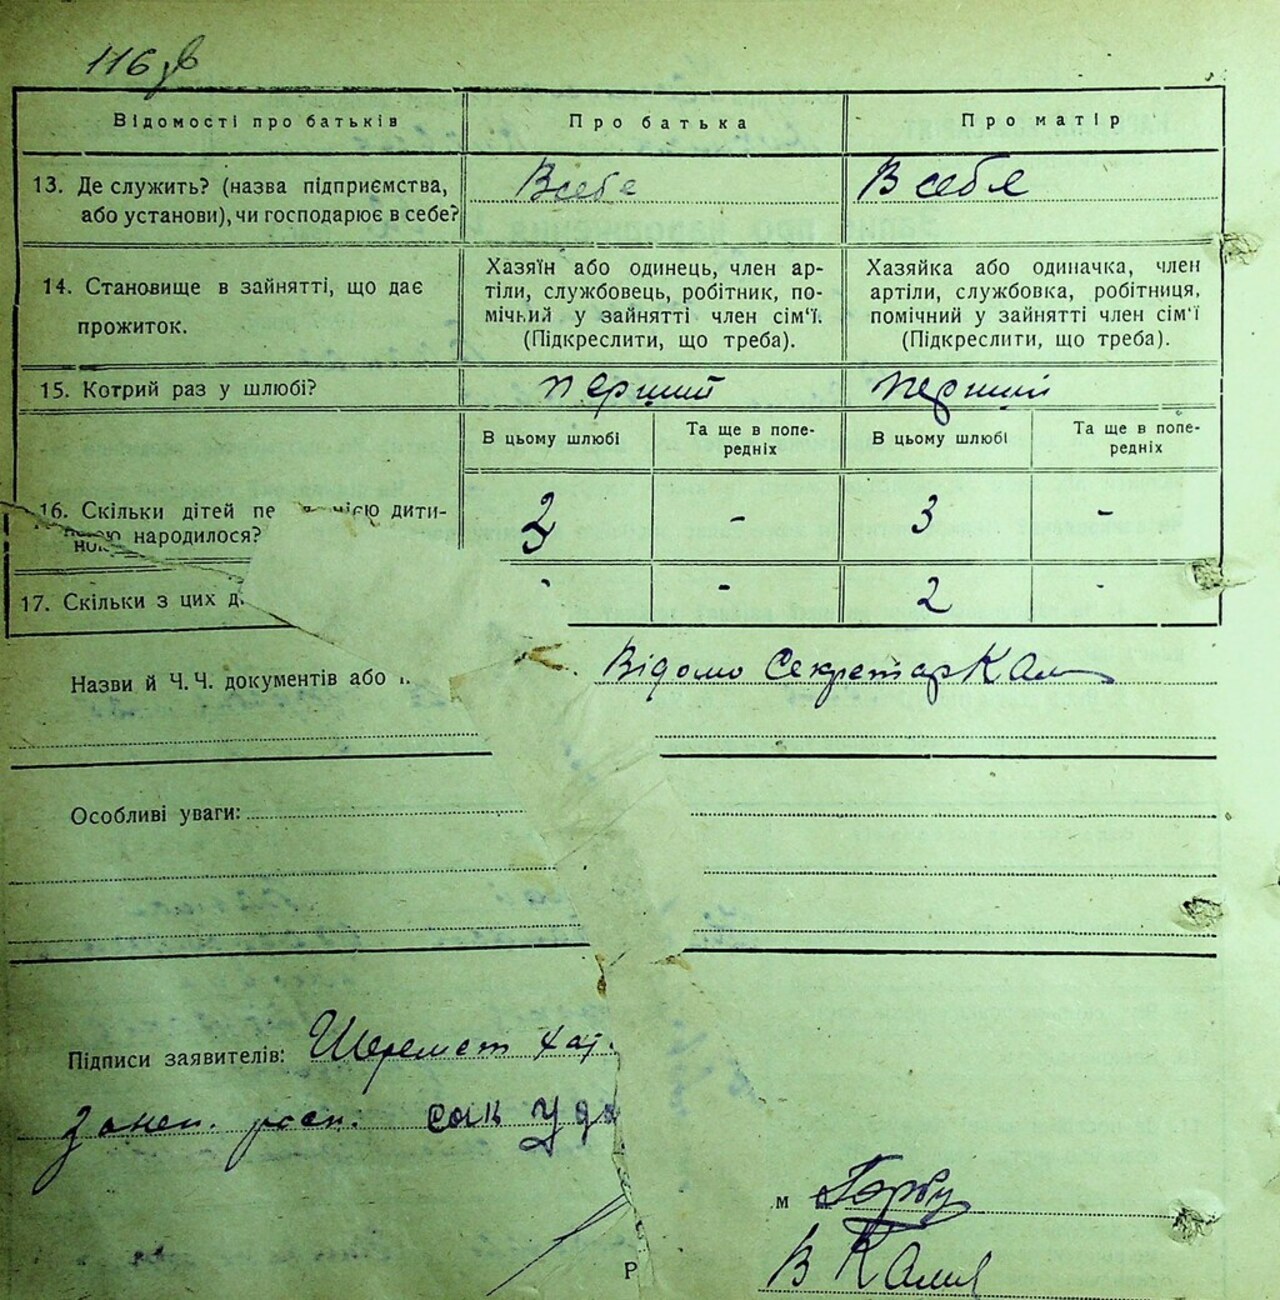 116 зв
Відомості про батьків
Про батька
Про матір
13. Де служить? (назва підприємства,
або установи), чи господарює в себе?
В себе
В себя
14. Становище в зайнятті, що дає
прожиток.
Хазяїн або одинець, член ар-
тіли, службовець, робітник, по-
мічний у зайнятті член сім'ї.
(Підкреслити, що треба).
Хазяйка або одиначка, член
артіли, службовка, робітниця,
помічний у зайнятті член сім'ї
(Підкреслити, що треба).
15. Котрий раз у шлюбі?
перший
перший
В цьому шлюбі
Та ще в попе-
редніх
В цьому шлюбі
Та ще в попе-
редніх
16. Скільки дітей пе цією дити-
ною народилося?
3
-
3
-
17. Скільки з цих д
-
2
-
Назви й Ч.Ч. документів або
Відомо Секретар
Особливі уваги:
Підписи заявителів: Шеремет
сам
м Горбу
Р В